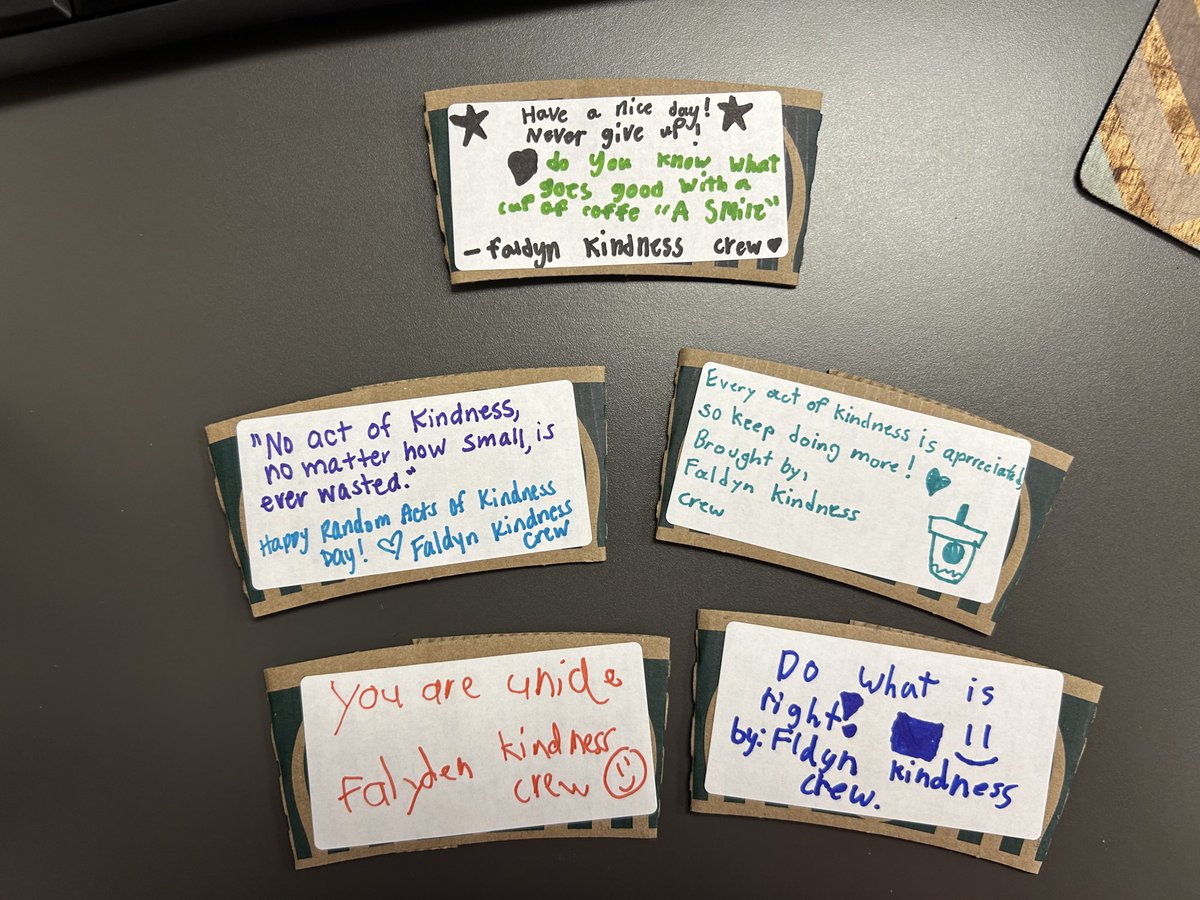 Have a nice day!
Never give up!
do you know what
goes good with a
cup of coffe "A SMile"
- faldyn kindness crew
"No act of kindness,
no matter how small, is
ever wasted."
Happy Random Acts of Kindness
Day! Faldyn Kindness
crew
Every act of kindness is aprreciated,
so keep doing more!
Brought by,
Faldyn kindness
crew
You are unide
Falyden kindness
crew
Do what is
right!
by: Fldyn kindness
crew.